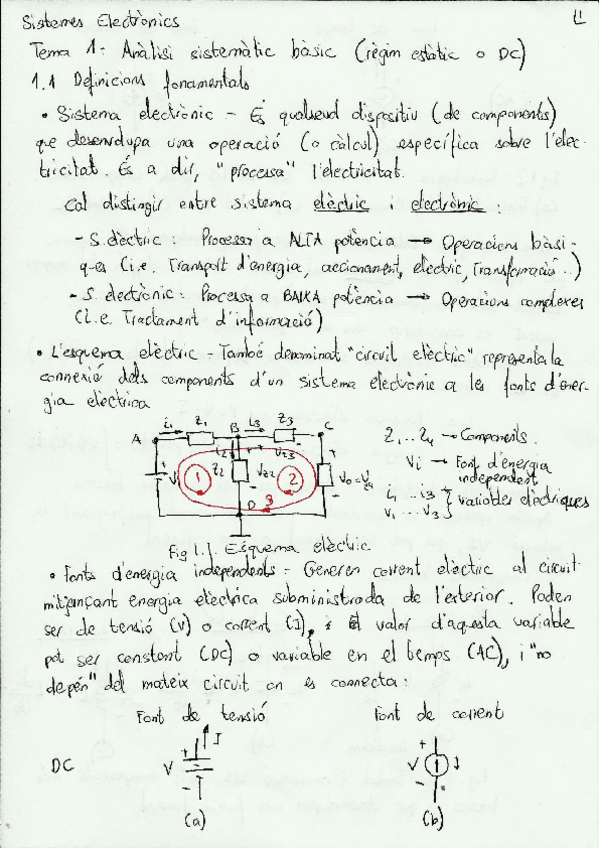 Sistemes Electrònics
1
Tema 1- Anàlisi sistemàtic bàsic (règim estàtic o DC)
1.1 Definicions fonamentals
• Sistema electrònic - És qualsevol dispositiu (de components)
que desenvolupa una operació (o càlcul) específica sobre l'elec-
tricitat. És a dir, "processa" l'electricitat.
Cal distingir entre sistema elèctric i electrònic:
- S. elèctric: Processa a ALTA potència → Operacions bàsi-
ques (i.e. Transport d'energia, accionament, elèctric, Transformació...)
- S. electrònic: Processa a BAIXA potència → Operacions complexes
(i.e. Tractament d'informació)
• L'esquema elèctric - També denominat "circuit elèctric" representa la
connexió dels components d'un sistema electrònic a les fonts d'ener-
gia elèctrica
A i1 Z1 B i3 Z3 C
+ V 1 i2 Z2 + Vz2 - Vz3 2 3 D + Vo = Vz4 -
Z1...Z4 → Components.
Vi → Font d'energia
independent
i1...i3 } variables elèctriques
V1...V3
Fig 1.1. Esquema elèctric
• Fonts d'energia independents - Generen corrent elèctric al circuit
mitjançant energia elèctrica subministrada de l'exterior. Poden
ser de tensió (V) o corrent (I), i el valor d'aquesta variable
pot ser constant (DC) o variable en el temps (AC), i "no
depèn" del mateix circuit on es connecta:
Font de tensió Font de corrent
DC V + - I V + - I
(a) (b)